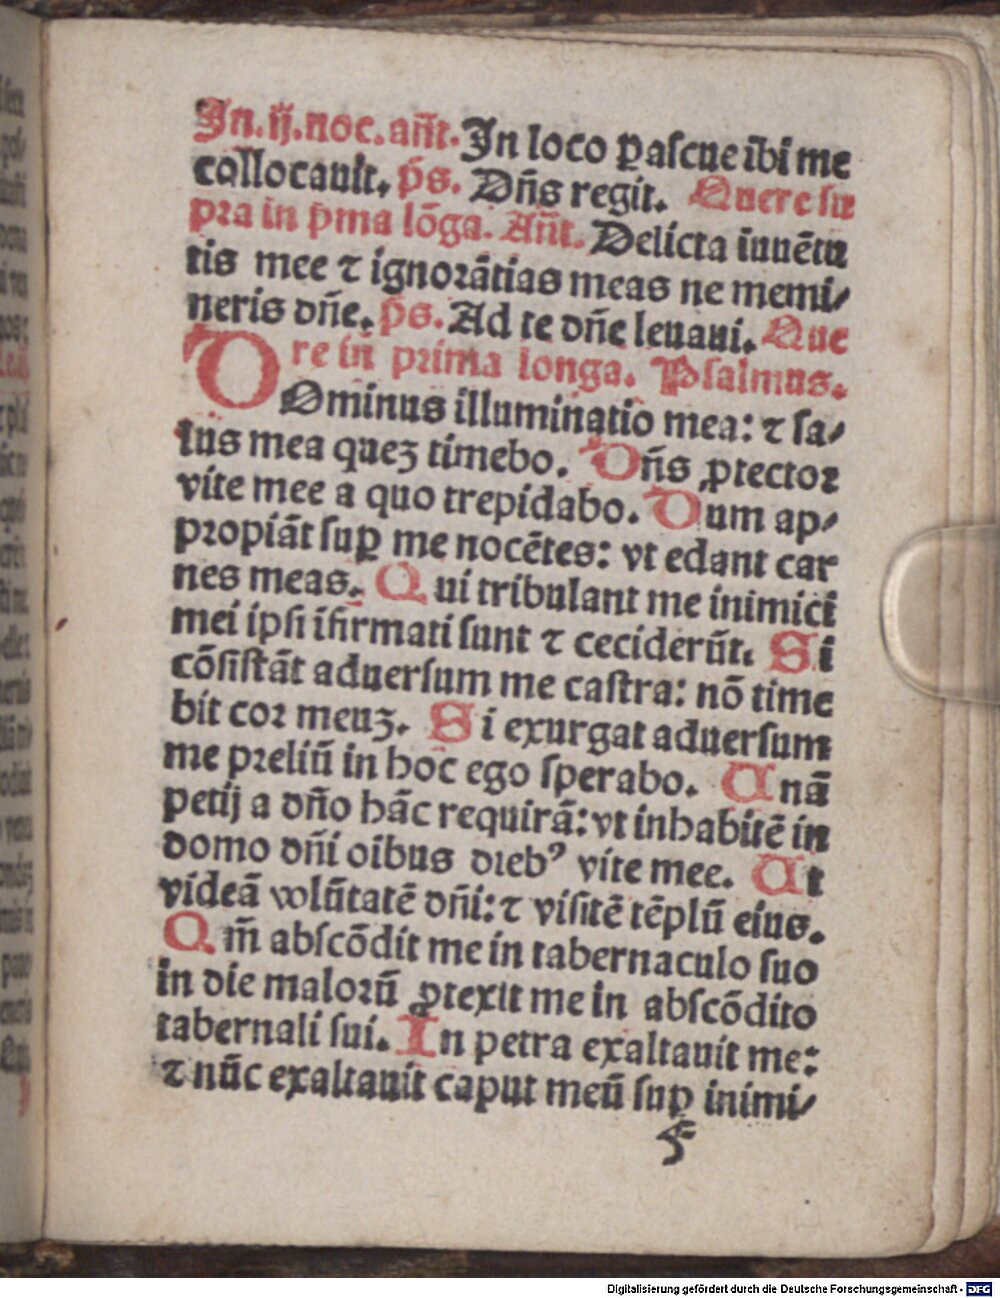 In.ij.noc.añt. In loco pascue ibi me
collocauit. p̄s. Dñs regit. Quere su
pra in p̄ma lōga. Añt. Delicta iuuētu
tis mee ⁊ ignorātias meas ne memi⸗
neris dñe. p̄s. Ad te dñe leuaui. Que
re in prima longa. Psalmus.
DOminus illuminatio mea: ⁊ sa⸗
lus mea queʒ timebo. Dñs ꝓtector
vite mee a quo trepidabo. Dum ap⸗
propiāt suꝑ me nocētes: vt edant car
nes meas. Qui tribulant me inimici
mei ipsi ifirmati sunt ⁊ ceciderūt. Si
cōsistāt aduersum me castra: nō time
bit cor meuʒ. Si exurgat aduersum
me preliū in hoc ego sperabo. Unā
petij a dño hāc requirā: vt inhabitē in
domo dñi oibus dieb⁹ vite mee. Ut
videā volūtatē dñi: ⁊ visitē tēplū eius.
Qm̄ abscōdit me in tabernaculo suo
in die malorū ꝓtexit me in abscōdito
tabernali sui. In petra exaltauit me:
⁊ nūc exaltauit caput meū suꝑ inimi⸗
Digitalisierung gefördert durch die Deutsche Forschungsgemeinschaft - DFG